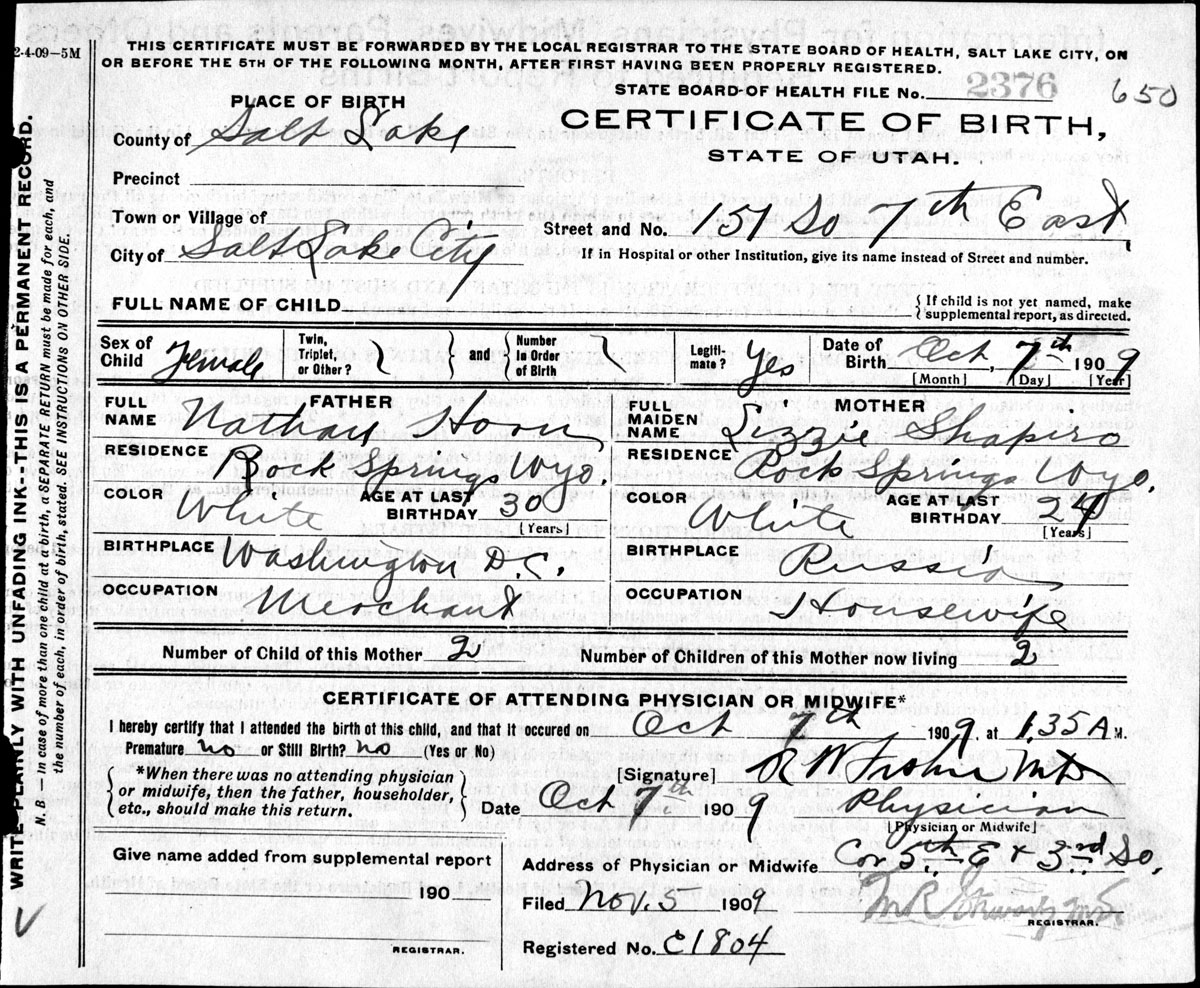 2-4-09—5M
THIS CERTIFICATE MUST BE FORWARDED BY THE LOCAL REGISTRAR TO THE STATE BOARD OF HEALTH, SALT LAKE CITY, ON
OR BEFORE THE 5TH OF THE FOLLOWING MONTH, AFTER FIRST HAVING BEEN PROPERLY REGISTERED.
STATE BOARD OF HEALTH FILE No. 2376 650
PLACE OF BIRTH
CERTIFICATE OF BIRTH,
STATE OF UTAH.
County of Salt Lake
Precinct
Town or Village of
Street and No. 151 So 7th East
City of Salt Lake City
If in Hospital or other Institution, give its name instead of Street and number.
FULL NAME OF CHILD
{ If child is not yet named, make supplemental report, as directed.
Sex of Child Female Twin, Triplet, or Other? } and { Number in Order of Birth Legiti-mate? Yes Date of Birth Oct, 7th 1909
[Month] [Day] [Year]
FATHER
FULL NAME Nathan Horn
RESIDENCE Rock Springs Wyo.
COLOR White AGE AT LAST BIRTHDAY 30
[Years]
BIRTHPLACE Washington D.C.
OCCUPATION Merchant
MOTHER
FULL MAIDEN NAME Lizzie Shapiro
RESIDENCE Rock Springs Wyo.
COLOR White AGE AT LAST BIRTHDAY 24
[Years]
BIRTHPLACE Russia
OCCUPATION Housewife
Number of Child of this Mother 2 Number of Children of this Mother now living 2
CERTIFICATE OF ATTENDING PHYSICIAN OR MIDWIFE*
I hereby certify that I attended the birth of this child, and that it occured on Oct 7th 1909, at 1.35 A M.
Premature no or Still Birth? no (Yes or No)
{ *When there was no attending physician or midwife, then the father, householder, etc., should make this return. }
[Signature] R W Fisher MD
Date Oct 7th 1909 Physician
[Physician or Midwife]
Give name added from supplemental report
190
REGISTRAR.
Address of Physician or Midwife Cor 5th E & 3rd So,
Filed Nov. 5 1909 M R
REGISTRAR.
Registered No. C1804
WRITE PLAINLY WITH UNFADING INK--THIS IS A PERMANENT RECORD.
N. B. — In case of more than one child at birth, a SEPARATE RETURN must be made for each, and
the number of each, in order of birth, stated. SEE INSTRUCTIONS ON OTHER SIDE.